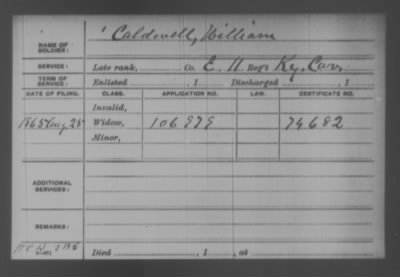 Caldwell, William
NAME OF SOLDIER:
SERVICE: Late rank, Co. E, 11 Reg't Ky. Cav.
TERM OF SERVICE: Enlisted , 1 Discharged , 1
DATE OF FILING. CLASS. APPLICATION NO. LAW. CERTIFICATE NO.
Invalid,
1865 Aug 25 Widow, 106 979 74.682
Minor,
ADDITIONAL SERVICES:
REMARKS:
Died , 1 , at